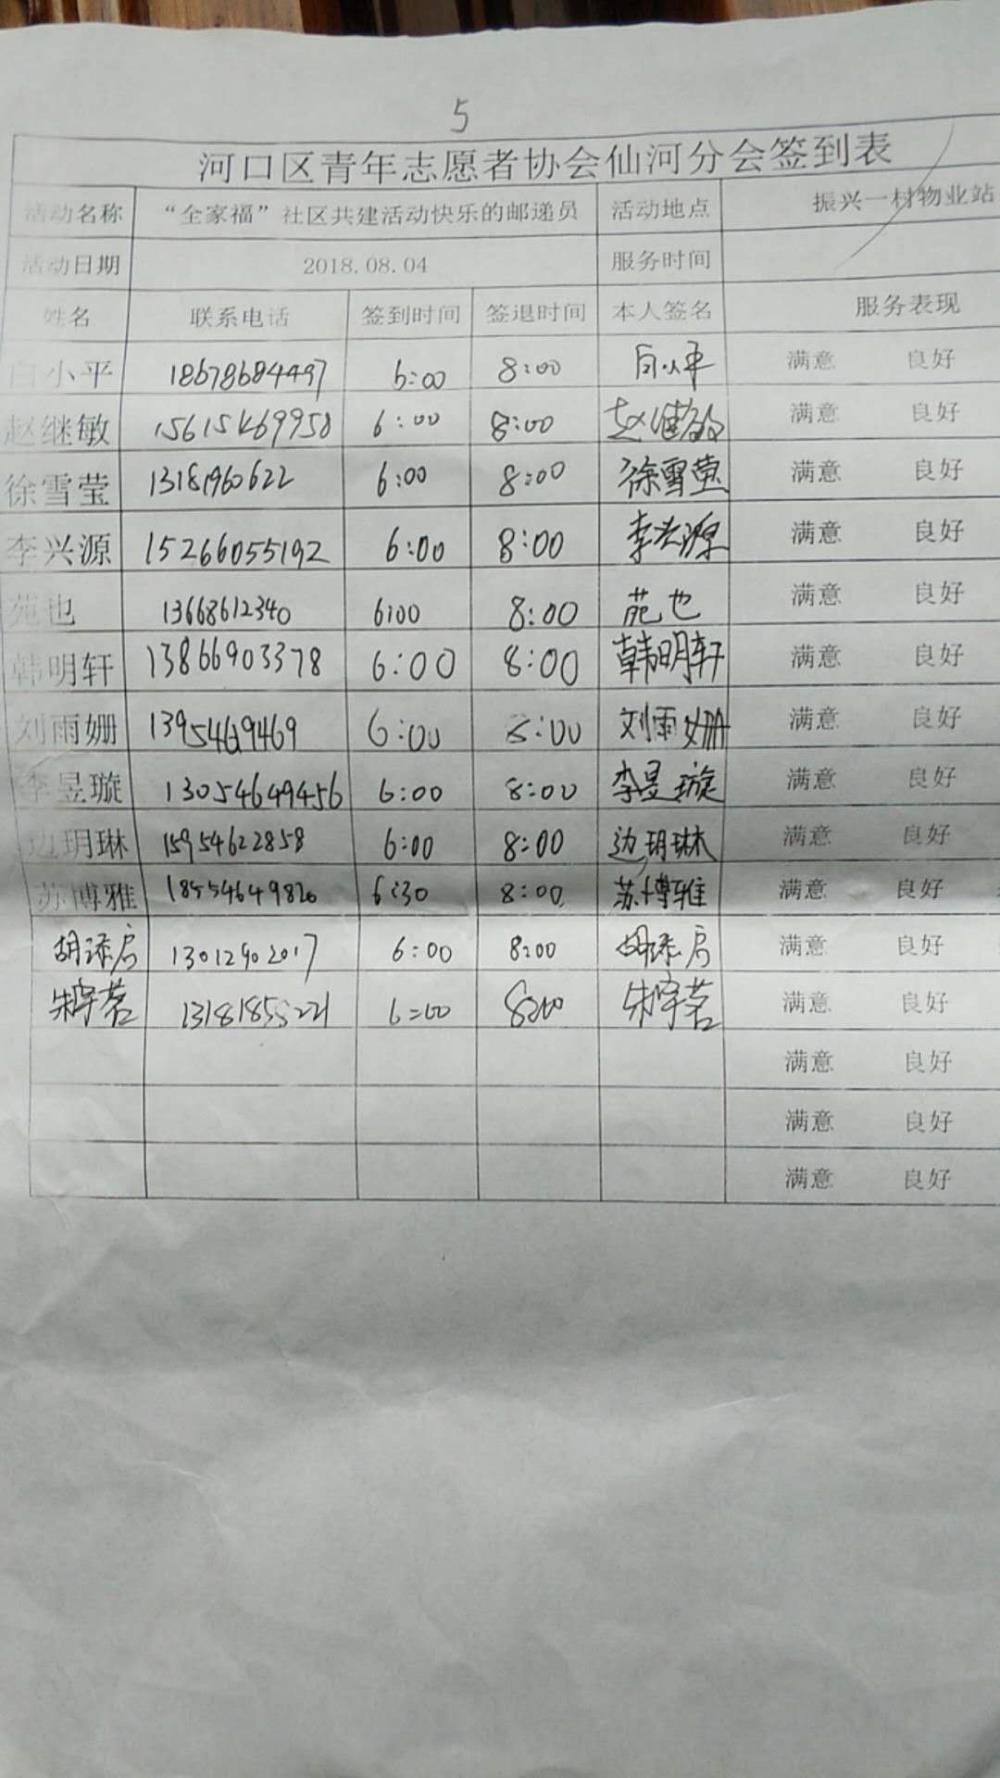 5
河口区青年志愿者协会仙河分会签到表
活动名称 “全家福”社区共建活动快乐的邮递员 活动地点 振兴一村物业站
活动日期 2018.08.04 服务时间
姓名 联系电话 签到时间 签退时间 本人签名 服务表现
白小平 18678684497 6:00 8:00 白小平 满意 良好
赵继敏 15615469958 6:00 8:00 赵继敏 满意 良好
徐雪莹 13181960622 6:00 8:00 徐雪莹 满意 良好
李兴源 15266055192 6:00 8:00 李兴源 满意 良好
苑也 13668612340 6:00 8:00 苑也 满意 良好
韩明轩 13866903378 6:00 8:00 韩明轩 满意 良好
刘雨姗 6:00 8:00 刘雨姗 满意 良好
李昱璇 13054649456 6:00 8:00 李昱璇 满意 良好
边玥琳 15954622858 6:00 8:00 边玥琳 满意 良好
苏博雅 18554649820 6:30 8:00 苏博雅 满意 良好
胡添启 13012902017 6:00 8:00 胡添启 满意 良好
朱宇茗 13181855221 6:00 8:00 朱宇茗 满意 良好
满意 良好
满意 良好
满意 良好